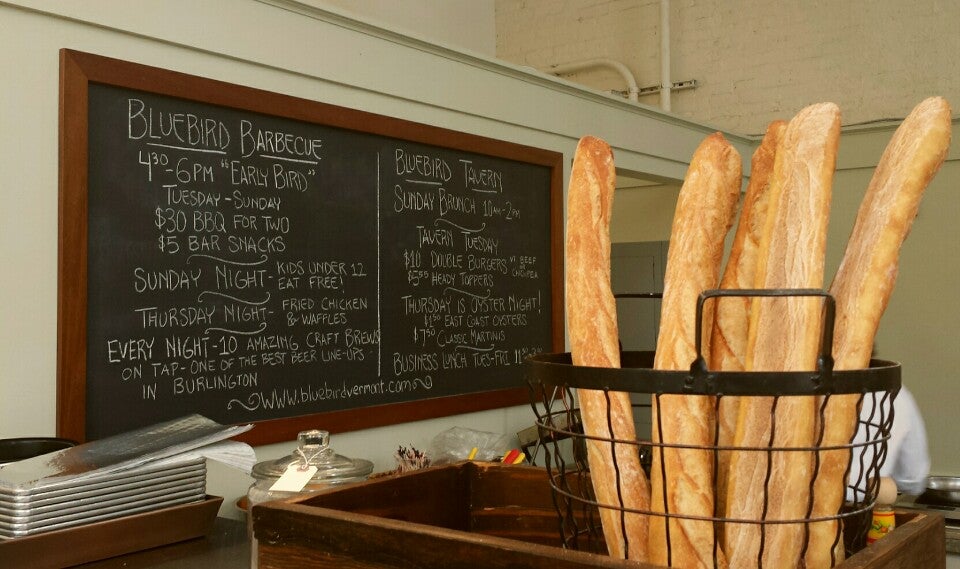 BLUEBIRD BARBECUE
430-6PM "EARLY BIRD"
TUESDAY-SUNDAY
$30 BBQ FOR TWO
$5 BAR SNACKS
SUNDAY NIGHT- KIDS UNDER 12
EAT FREE!
THURSDAY NIGHT- FRIED CHICKEN
& WAFFLES
EVERY NIGHT-10 AMAZING CRAFT BREWS
ON TAP-ONE OF THE BEST BEER LINE-UPS
IN BURLINGTON
WWW.bluebirdvermont.com
BLUEBIRD TAVERN
SUNDAY BRUNCH 10AM-2PM
TAVERN TUESDAY
$10 DOUBLE BURGERS BEEF
OR CHICKPEA
HEADY TOPPERS
THURSDAY IS OYSTER NIGHT!
$1.50 EAST COAST OYSTERS
$7.50 CLASSIC MARTINIS
BUSINESS LUNCH TUES-FRI 11:30